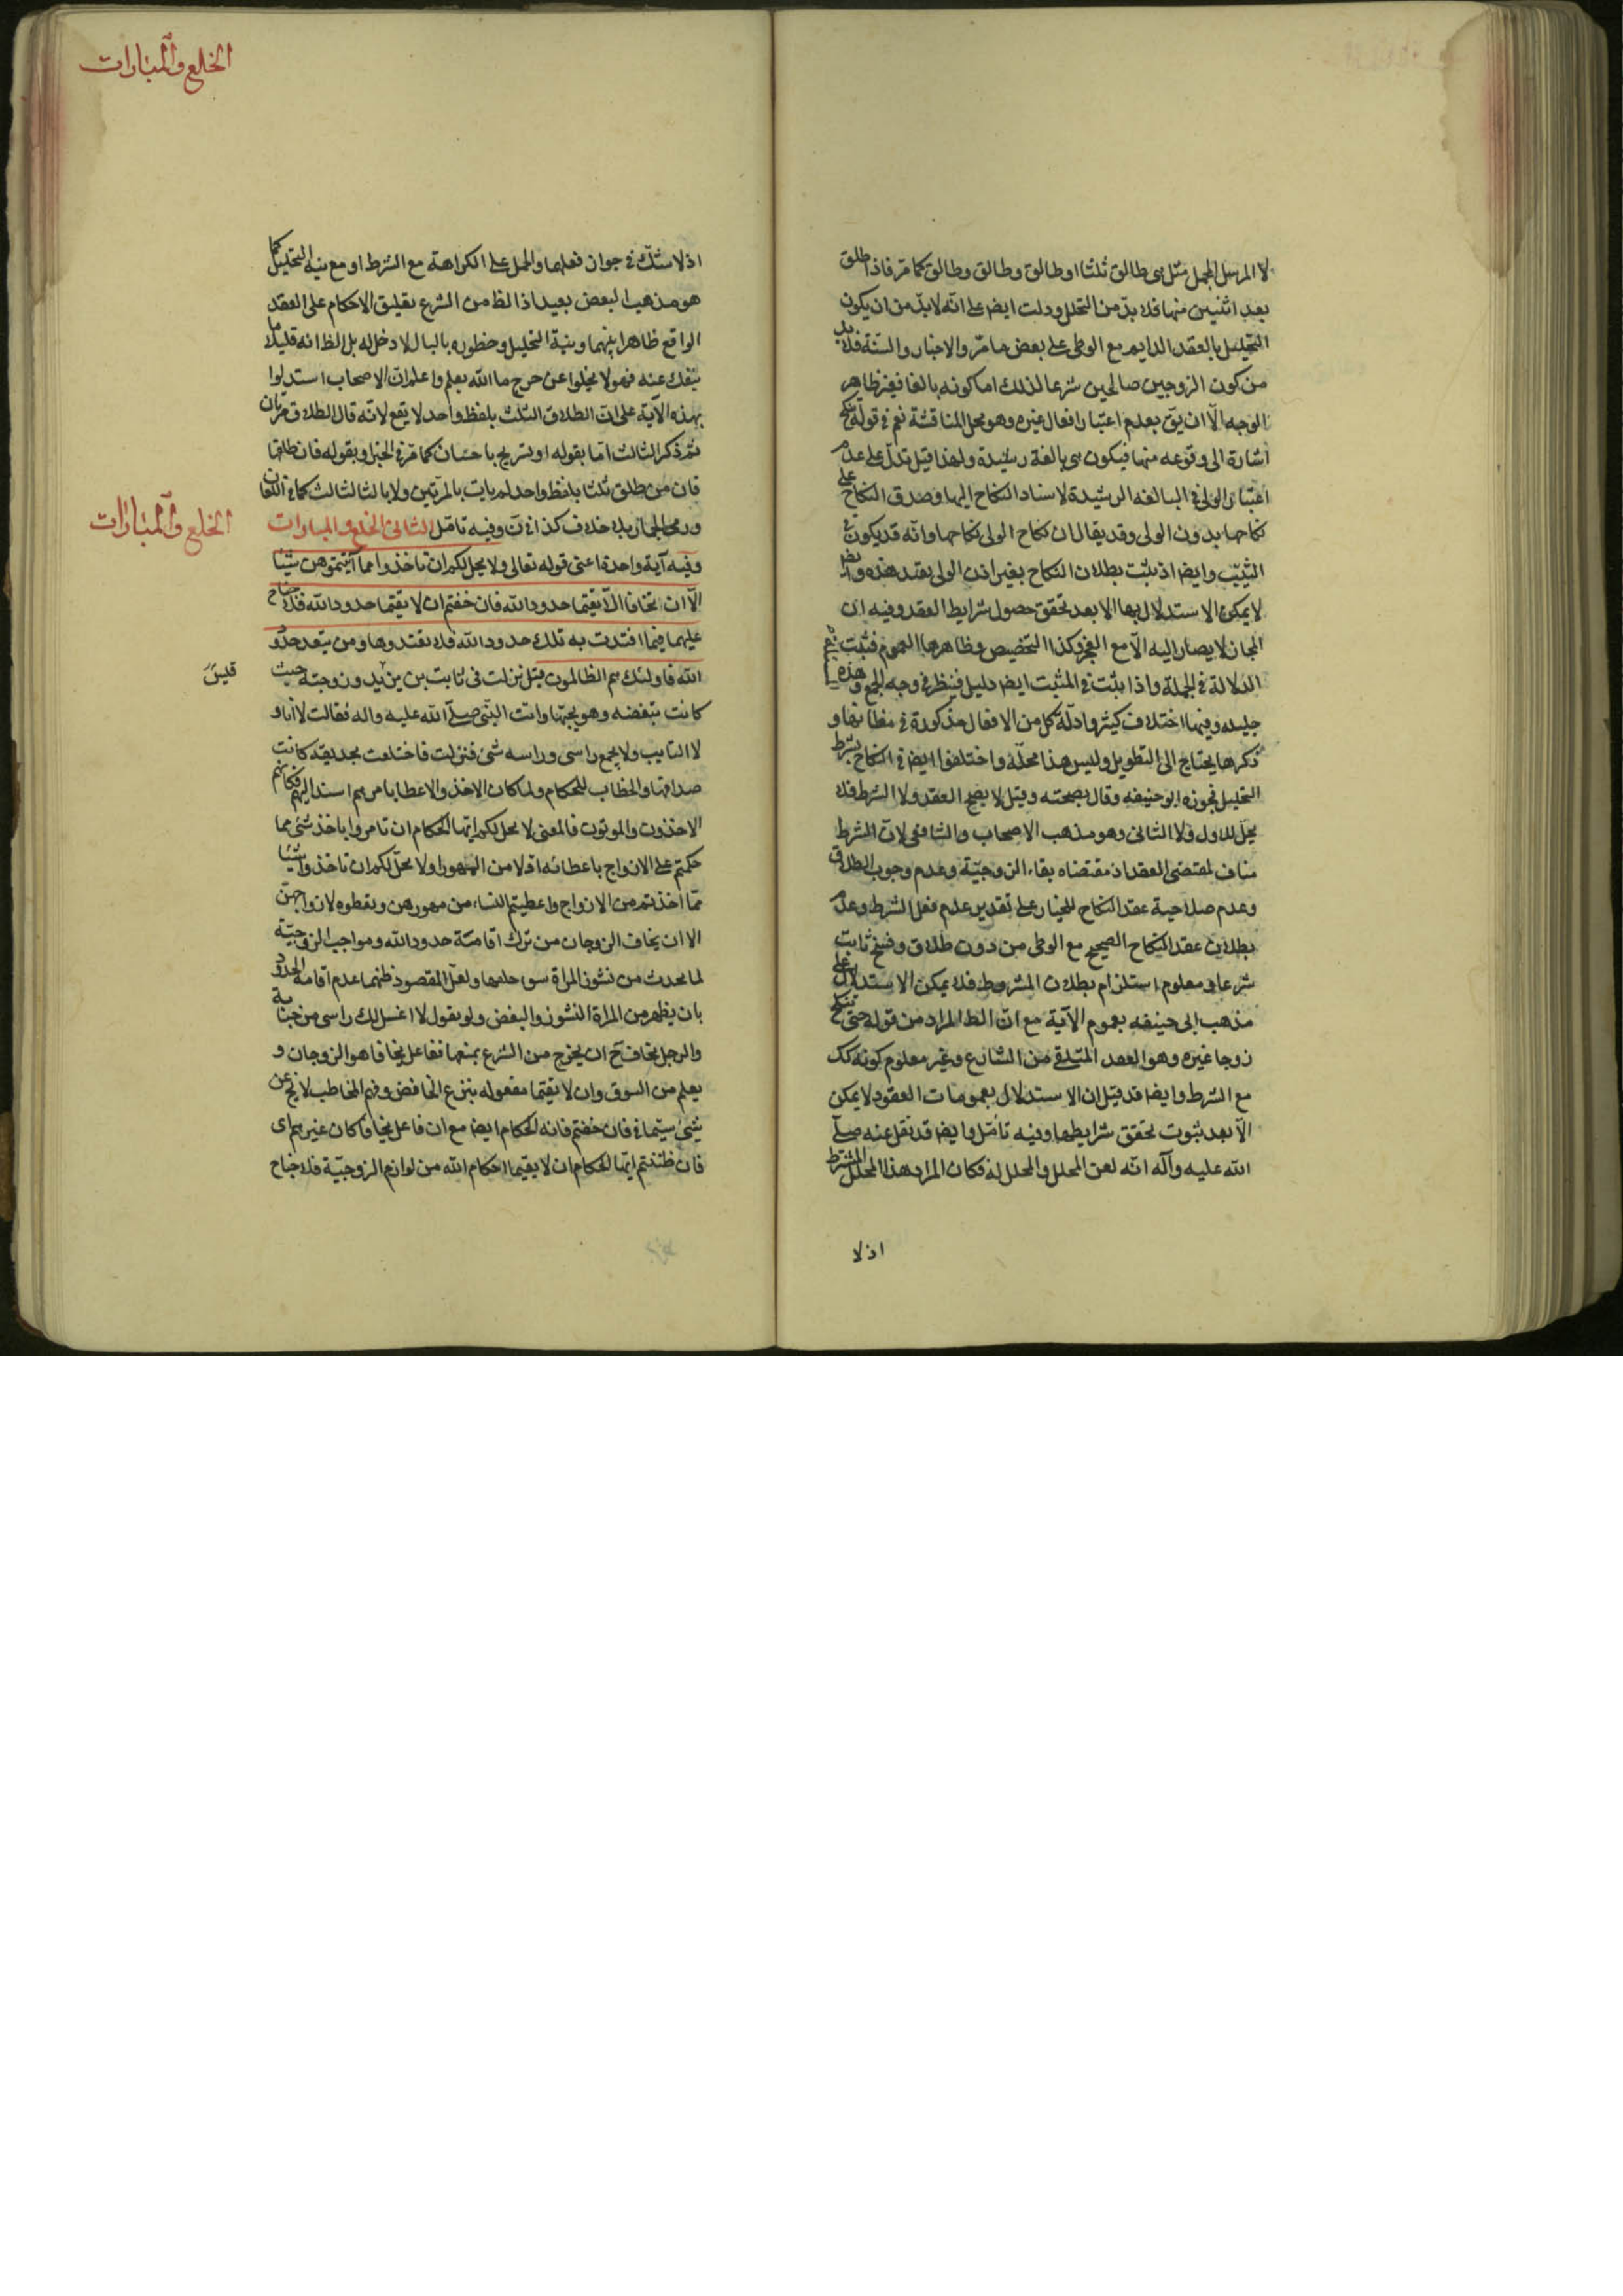 لا المرسل المجمل مثل هي طالق ثلثا او طالق وطالق وطالق كما مر فاذا طلق
بعد اثنين منها فلا بد من التحلل ودلت ايضا على انه لا بد من ان يكون
التحليل بالعقد الدايم مع الوطى على بعض ما مر والاخبار والسنة فلا بد
من كون الزوجين صالحين شرعا لذلك اما كونه بالغا فغير ظاهر
الوجه الا ان يق بعدم اعتبار افعال غيره وهو محل المناقشة نعم في قوله تنكح
اشارة الى وقوعه منها فيكون هي بالغة رشيدة ولهذا قيل تدل على عدم
اعتبار الولي في البالغه الرشيدة لاسناد النكاح اليها وصدق النكاح على
نكاحها بدون الولى وقد يقال ان نكاح الولى نكاحها وانه قد يكون في
الثيب وايضا اذ يثبت بطلان النكاح بغير اذن الولى يقيد هذه وايضا
لا يمكن الاستدلال بها الا بعد تحقق حصول شرايط العقد وفيه ان
المجاز لا يصار اليه الا مع العجز وكذا التخصيص وظاهرها العموم فثبت
الدلالة في الجملة واذا يثبت في المثبت ايضا دليل فينظر في وجه الجمع وهذه
جليله وفيها اختلاف كثير وادلة كل من الافعال مذكورة في مظانها و
ذكرها يحتاج الى التطويل وليس هذا محله واختلفوا ايضا في النكاح بشرط
التحليل فجوزه ابو حنيفه وقال بصحته وقيل لا يصح العقد ولا الشرط فلا
يحل للاول ولا الثانى وهو مذهب الاصحاب والشافعى لان الشرط
مناف لمقتضى العقد اذ مقتضاه بقاء الزوجية وعدم وجوب الطلاق
وعدم صلاحية عقد النكاح للخيار على تقدير عدم فعل الشرط وعدم
بطلان عقد النكاح الصحيح مع الوطى من دون طلاق وفسخ ثابت
شرعا ومعلوم استلزام بطلان الشرط بطلان المشروط فلا يمكن الاستدلال على
مذهب ابى حنيفه بعموم الآية مع ان الظ المراد من قوله حتى تنكح
زوجا غيره وهو العقد المتلقى من الشارع وغير معلوم كونه كك
مع الشرط وايضا قد قيل ان الاستدلال بعمومات العقود لا يمكن
الا بعد ثبوت تحقق شرايطها وفيه تامل وايضا قد نقل عنه صلى
الله عليه وآله انه لعن المحلل والمحلل له فكان المراد هذا المحلل المشترط
اذ لا
الخلع والمبارات
اذ لا شك في جواز فعلها والحمل على الكراهة مع الشرط او مع نية التحليل كما
هو مذهب البعض بعيد اذ الظ من الشرع تعليق الاحكام على العقد
الواقع ظاهرا بينهما ونية التحليل وخطوره بالبال لا دخل له بل الظ انه قليلا ما
ينفك عنه فهو لا يخلوا عن حرج ما الله يعلم واعلم ان الاصحاب استدلوا
بهذه الآية على ان الطلاق الثلث بلفظ واحد لا يقع لانه قال الطلاق مرتان
ثم ذكر الثالث اما بقوله او تسريح باحسان كما مر في الخبر او بقوله فان طلقها
فان من طلق ثلثا بلفظ واحد لم يات بالمرتين ولا بالثالث كما في اللعان
ورمى الجمار بلا خلاف كذا في ن وفيه تامل الثانى الخلع والمبارات
الخلع والمبارات
وفيه آية واحدة اعنى قوله تعالى ولا يحل لكم ان تاخذوا مما آتيتموهن شيئا
الا ان تخافا الا يقيما حدود الله فان خفتم ان لا يقيما حدود الله فلا جناح
عليهما فيما افتدت به تلك حدود الله فلا تعتدوها ومن يتعد حدود
الله فاولئك هم الظالمون قيل نزلت فى ثابت بن يزيد وزوجته حيث
قيس
كانت تبغضه وهو يحبها واتت النبى صلى الله عليه واله فقالت لا انا و
لا الثابت ولا يجمع راسى وراسه شئ فنزلت فاختلعت بحديقه كانت
صداقها والخطاب للحكام ولما كان الاخذ والاعطا بامرهم اسند اليهم فكانهم
الاخذون والموتون فالمعنى لا يحل لكم ايها الحكام ان تامروا باخذ شئ مما
حكمتم على الازواج باعطائه اولا من المهور اولا يحل لكم ان تاخذوا شيئا
مما اخذتم من الازواج واعطيتم النساء من مهورهن وتعطوه لازواجهن
الا ان يخاف الزوجان من ترك اقامة حدود الله ومواجب الزوجية
لما يحدث من نشوز المراة سوء خلقها ولعل المقصود ظنهما عدم اقامة الحدود
بان يظهر من المراة النشوز والبغض ولو بقول لا اغسل لك راسى من جنابة
والرجل يخاف ح ان يخرج من الشرع بمنعها ففاعل يخافا هو الزوجان و
يعلم من السوق وان لا يقيما مفعوله بنزع الخافض وفهم المخاطب لا يخ عن
شئ سيما في فان خفتم فانه الحكام ايضا مع ان فاعل يخافا كان غيرهم اى
فان ظننتم ايها الحكام ان لا يقيما احكام الله من لوازم الزوجية فلا جناح